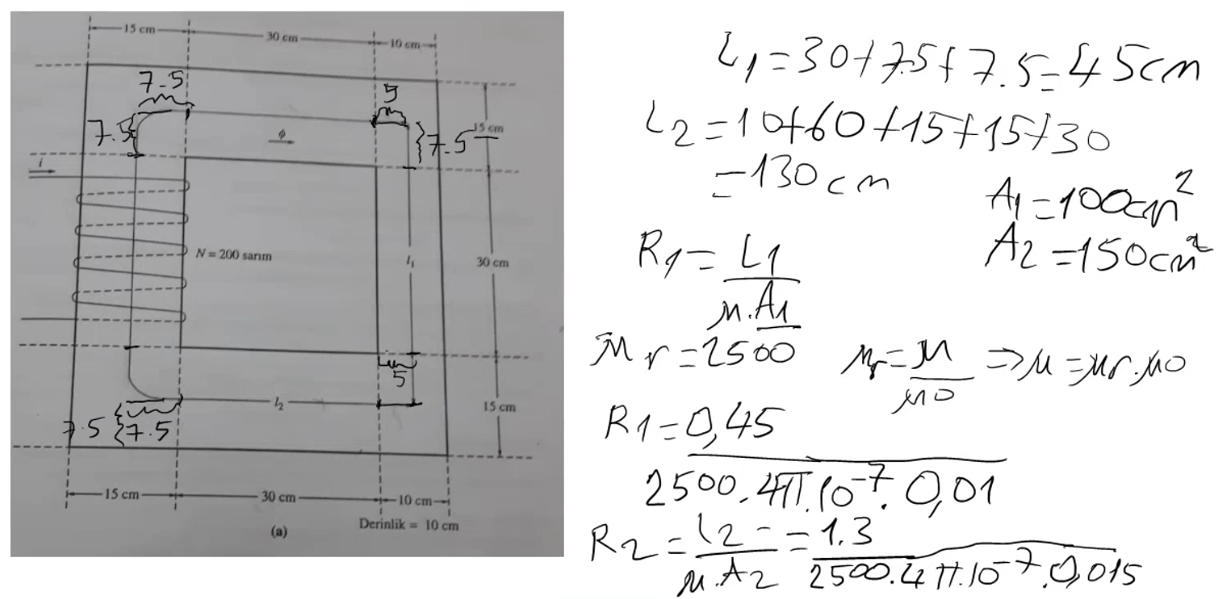 15 cm
30 cm
10 cm
7.5
5
7.5
7.5
15 cm
ϕ
i
N = 200 sarım
l₁
30 cm
5
l₂
15 cm
7.5
7.5
15 cm
30 cm
10 cm
(a)
Derinlik = 10 cm
L₁=30+7.5+7.5=45cm
L₂=10+60+15+15+30
=130cm
A₁=100cm²
A₂=150cm²
R₁=L₁/μ.A₁
μr=2500
μr=μ/μ0 ⇒μ=μr.μ0
R₁=0,45/2500.4π.10⁻⁷.0,01
R₂=L₂/μ.A₂=1.3/2500.4π.10⁻⁷.0,015